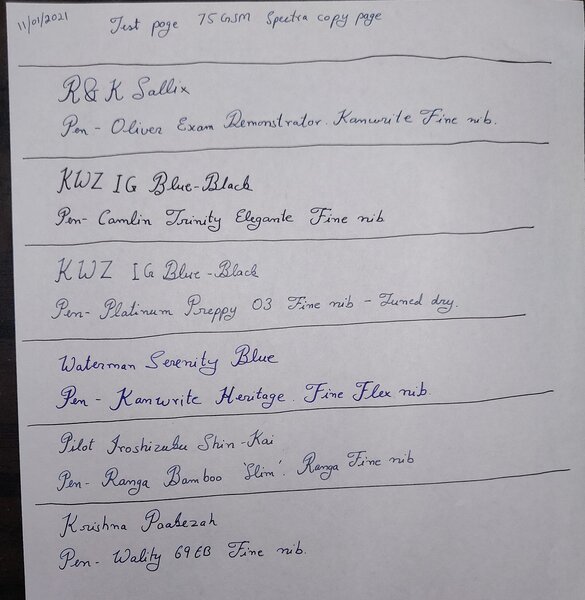 11/01/2021
Test page 75 GSM Spectra copy page
R&K Sallix
Pen - Oliver Exam Demonstrator. Kanwrite Fine nib.
KWZ IG Blue-Black
Pen- Camlin Trinity Elegante Fine nib
KWZ IG Blue-Black
Pen- Platinum Preppy 03 Fine nib - Tuned dry.
Waterman Serenity Blue
Pen - Kanwrite Heritage. Fine Flex nib.
Pilot Iroshizuku Shin-Kai
Pen- Ranga Bamboo 'Slim'. Ranga Fine nib
Krishna Paakezah
Pen- Wality 69EB Fine nib.